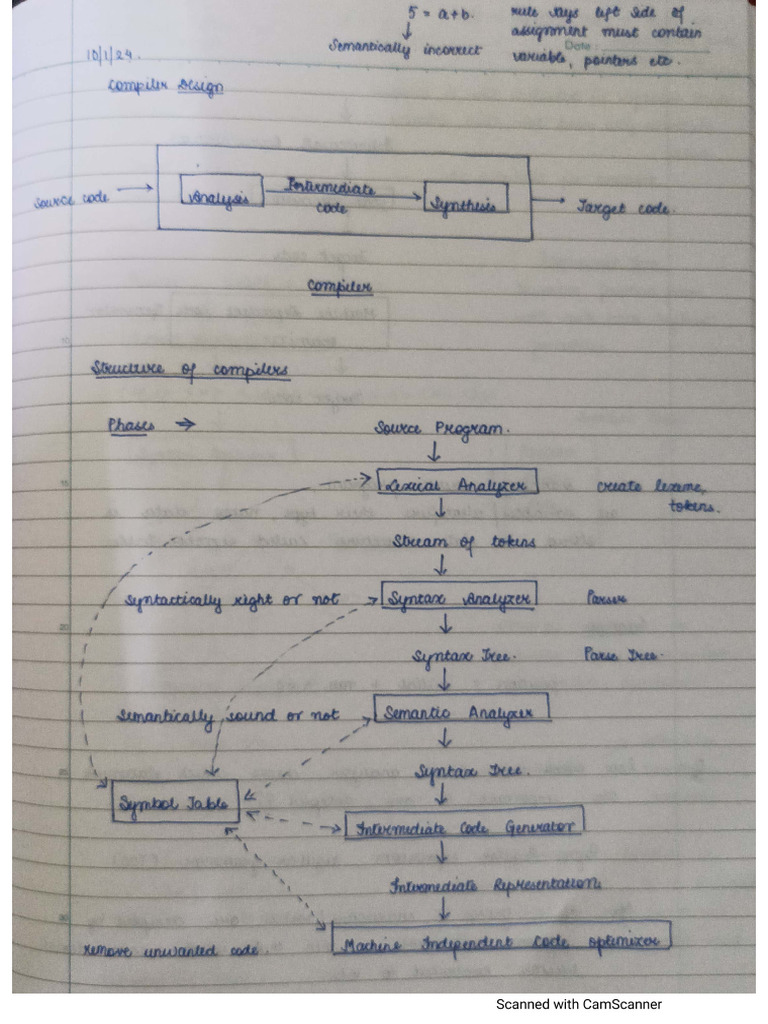 5 = a+b. rule says left side of
Semantically incorrect assignment must contain
Date
10/1/24. variable, pointers etc.
Compiler Design
Source code Analysis Intermediate Synthesis Target code.
code
Compiler
Structure of compilers
Phases → Source Program.
Lexical Analyzer create lexeme,
tokens.
Stream of tokens
Syntactically right or not Syntax Analyzer Parser
Syntax Tree. Parse Tree.
Semantically sound or not Semantic Analyzer
Syntax Tree.
Symbol Table
Intermediate Code Generator
Intermediate Representation
remove unwanted code. Machine Independent Code Optimizer
Scanned with CamScanner